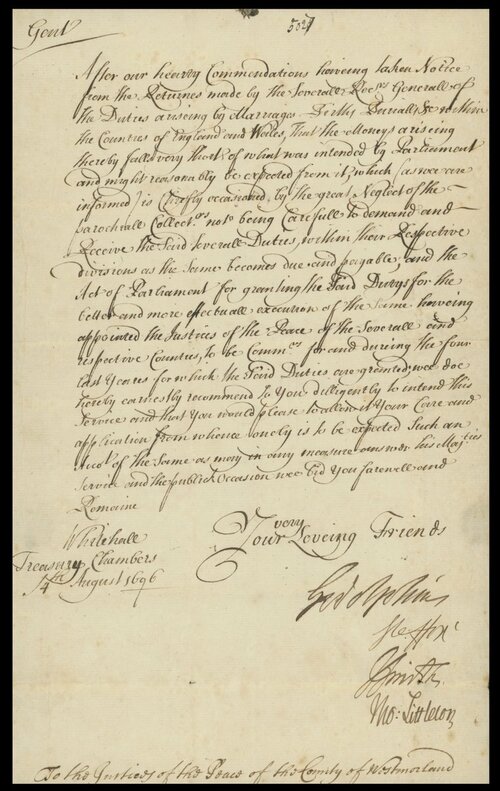 Gent
502
After our hearty Commendations haveing taken Notice
from the Returnes made by the Severall Recrs Generall of
the Duties ariseing by Marriages Births Buriall &c within
the Counties of England and Wales, that the Moneys ariseing
thereby fall very short of what was intended by Parliament
and might reasonably be expected from it, which (as wee are
informed) is cheifly occasioned by the great Neglect of the
Parochiall Collectrs not being Carefull to demand and
Receive the said severall Duties, within their Respective
divisions as the same becomes due and payable, and the
Act of Parliament for granting the said Dutys for the
better and more effectuall execution of the same haveing
appointed the Justices of the Peace of the Severall and
respective Counties, to be Commrs for and dureing the four
last Yeares for which the said Duties are granted, wee doe
hereby earnestly recommend to You dilligently to intend this
Service and that You would please to allow it Your Care and
application from whence onely is to be expected Such an
Acct of the Same as may in any measure answer his Majties
Service and the publick Occasion wee bid You farewell and
Remaine
Whitehall
Treasury Chambers
14th August 1696
Your very Loveing Friends
Godolphin
Ste: ffox
J Smith
Tho: Littleton
To the Justices of the Peace of the County of Westmorland